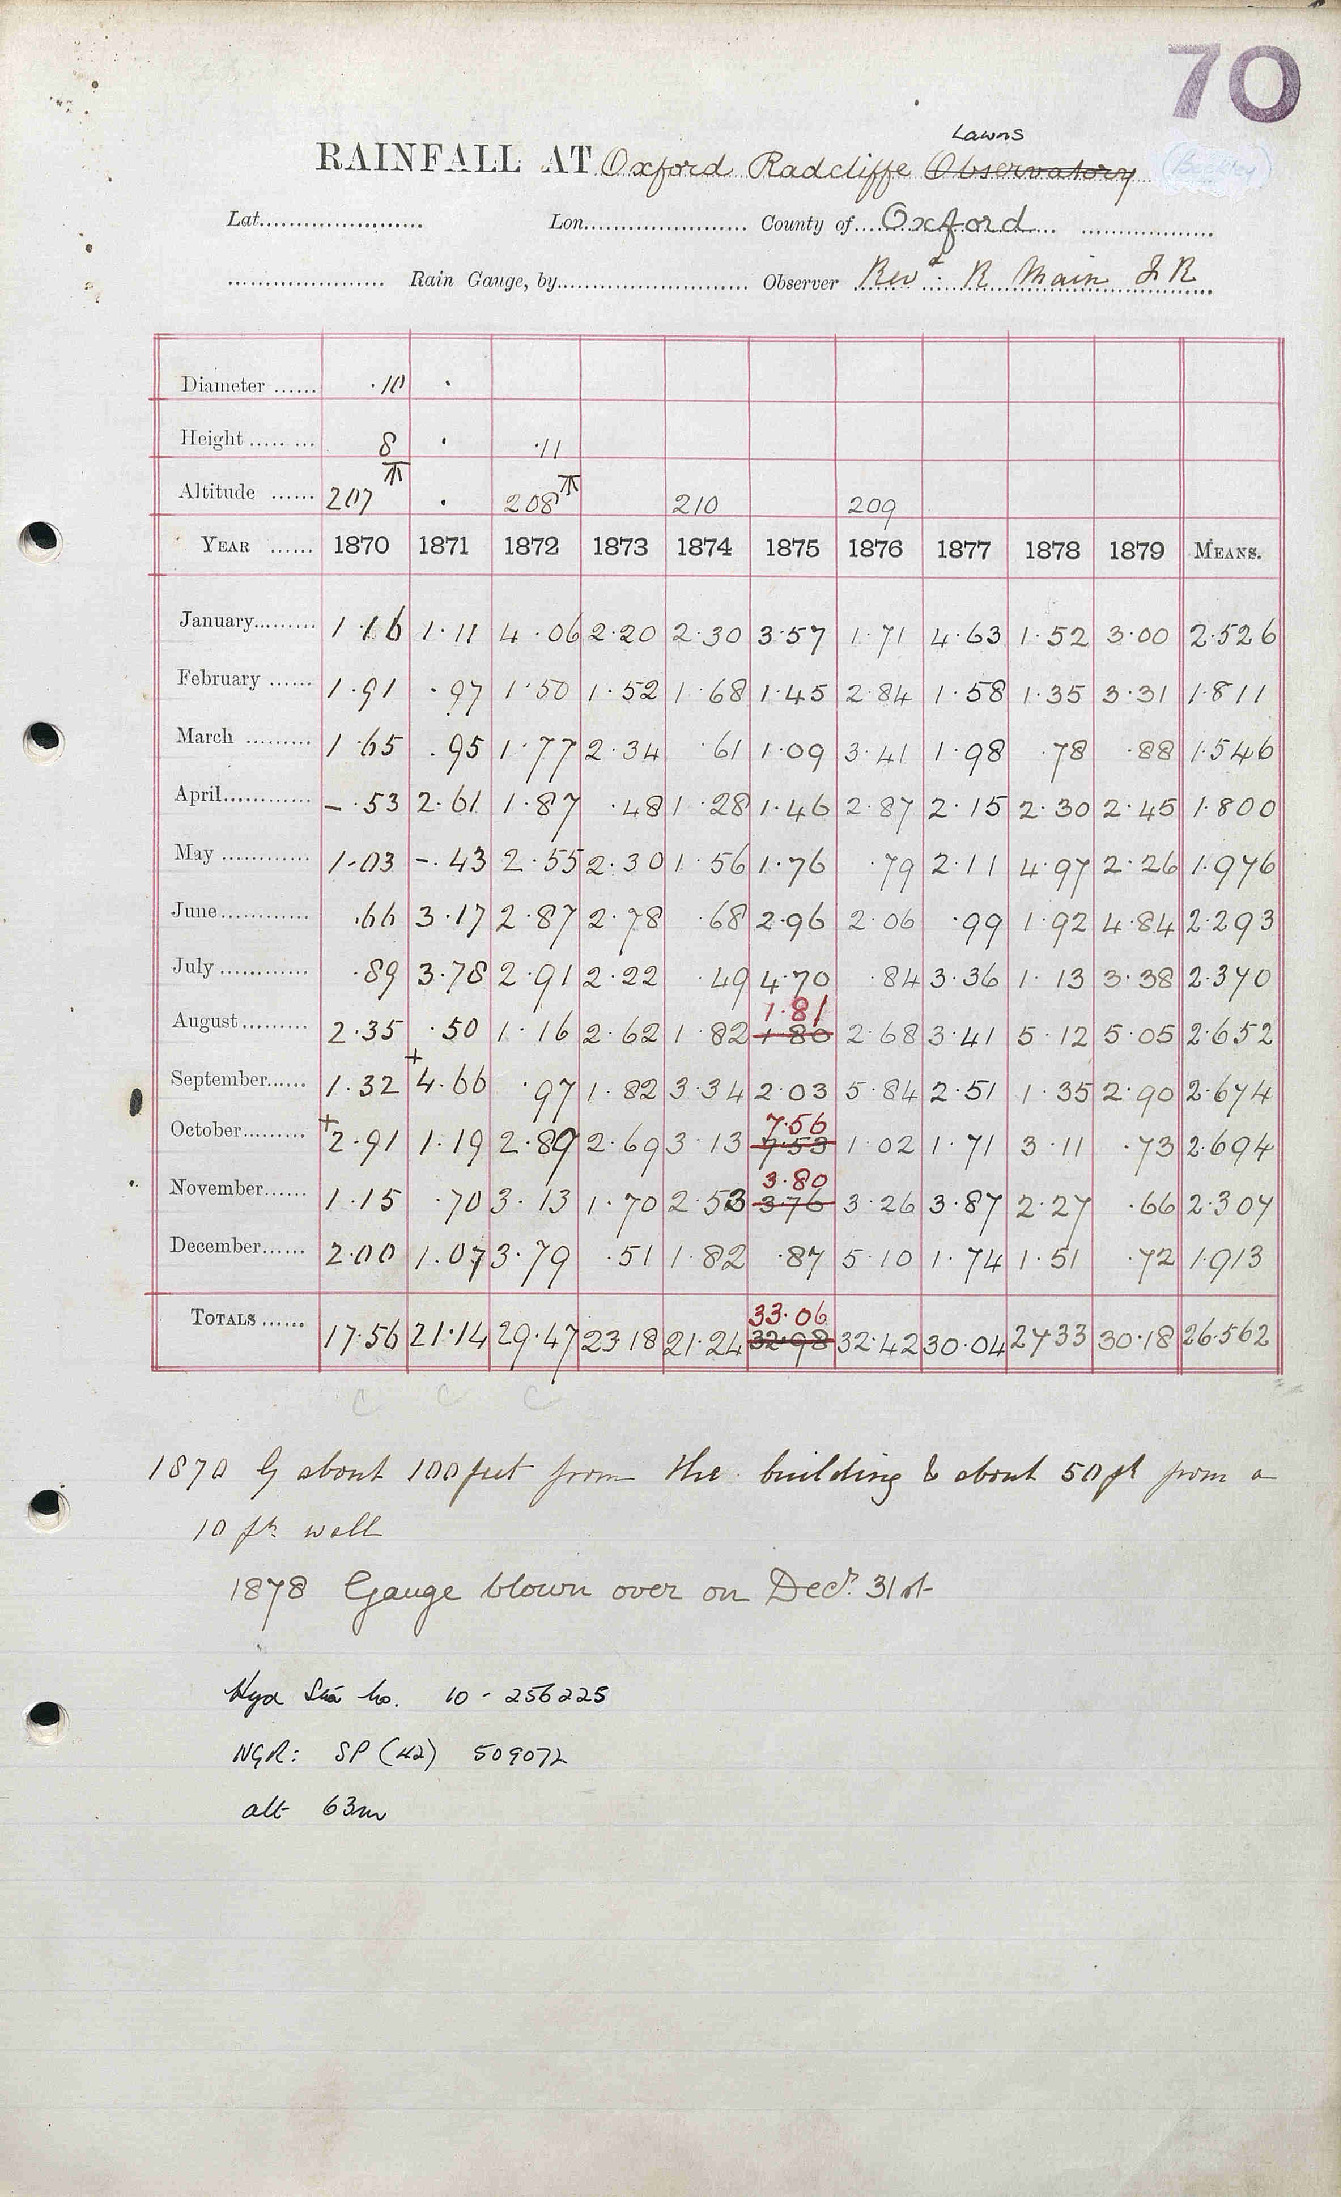 70
Lawns
RAINFALL AT Oxford Radcliffe Observatory (Beckley)
Lat. Lon. County of Oxford
Rain Gauge, by Observer Revd. R Main F R
Diameter 10
Height 8 11
Altitude 207 208 210 209
YEAR 1870 1871 1872 1873 1874 1875 1876 1877 1878 1879 MEANS.
January 1.16 1.11 4.06 2.20 2.30 3.57 1.71 4.63 1.52 3.00 2.526
February 1.91 .97 1.50 1.52 1.68 1.45 2.84 1.58 1.35 3.31 1.811
March 1.65 .95 1.77 2.34 .61 1.09 3.41 1.98 .78 .88 1.546
April -.53 2.61 1.87 .48 1.28 1.46 2.87 2.15 2.30 2.45 1.800
May 1.03 -.43 2.55 2.30 1.56 1.76 .79 2.11 4.97 2.26 1.976
June .66 3.17 2.87 2.78 .68 2.96 2.06 .99 1.92 4.84 2.293
July .89 3.78 2.91 2.22 .49 4.70 .84 3.36 1.13 3.38 2.370
1.81
August 2.35 .50 1.16 2.62 1.82 1.80 2.68 3.41 5.12 5.05 2.652
September 1.32 +4.66 .97 1.82 3.34 2.03 5.84 2.51 1.35 2.90 2.674
7.56
October +2.91 1.19 2.89 2.69 3.13 7.53 1.02 1.71 3.11 .73 2.694
3.80
November 1.15 .70 3.13 1.70 2.53 3.76 3.26 3.87 2.27 .66 2.307
December 2.00 1.07 3.79 .51 1.82 .87 5.10 1.74 1.51 .72 1.913
33.06
TOTALS 17.56 21.14 29.47 23.18 21.24 32.98 32.42 30.04 27.33 30.18 26.562
C C C
1870 G about 100 feet from the building & about 50 ft from a
10 ft wall
1878 Gauge blown over on Decr. 31st
Hyd Sta No. 10 - 256225
NGR: SP (42) 509072
alt 63m